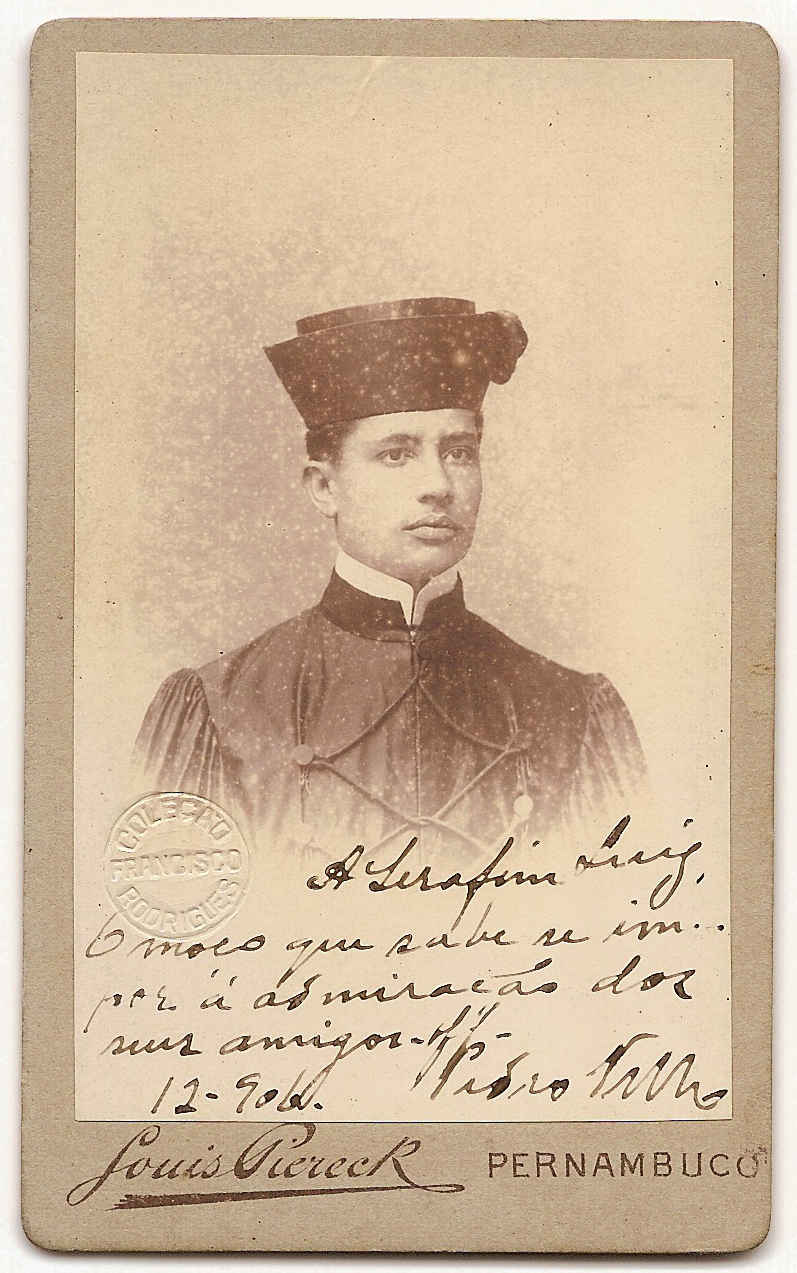 COLEÇÃO
FRANCISCO
RODRIGUES
A Serafim Luiz,
O moço que sabe se im..
por á admiração dos
seus amigos-off-
12-906. Pedro Velho
Louis Piereck PERNAMBUCO